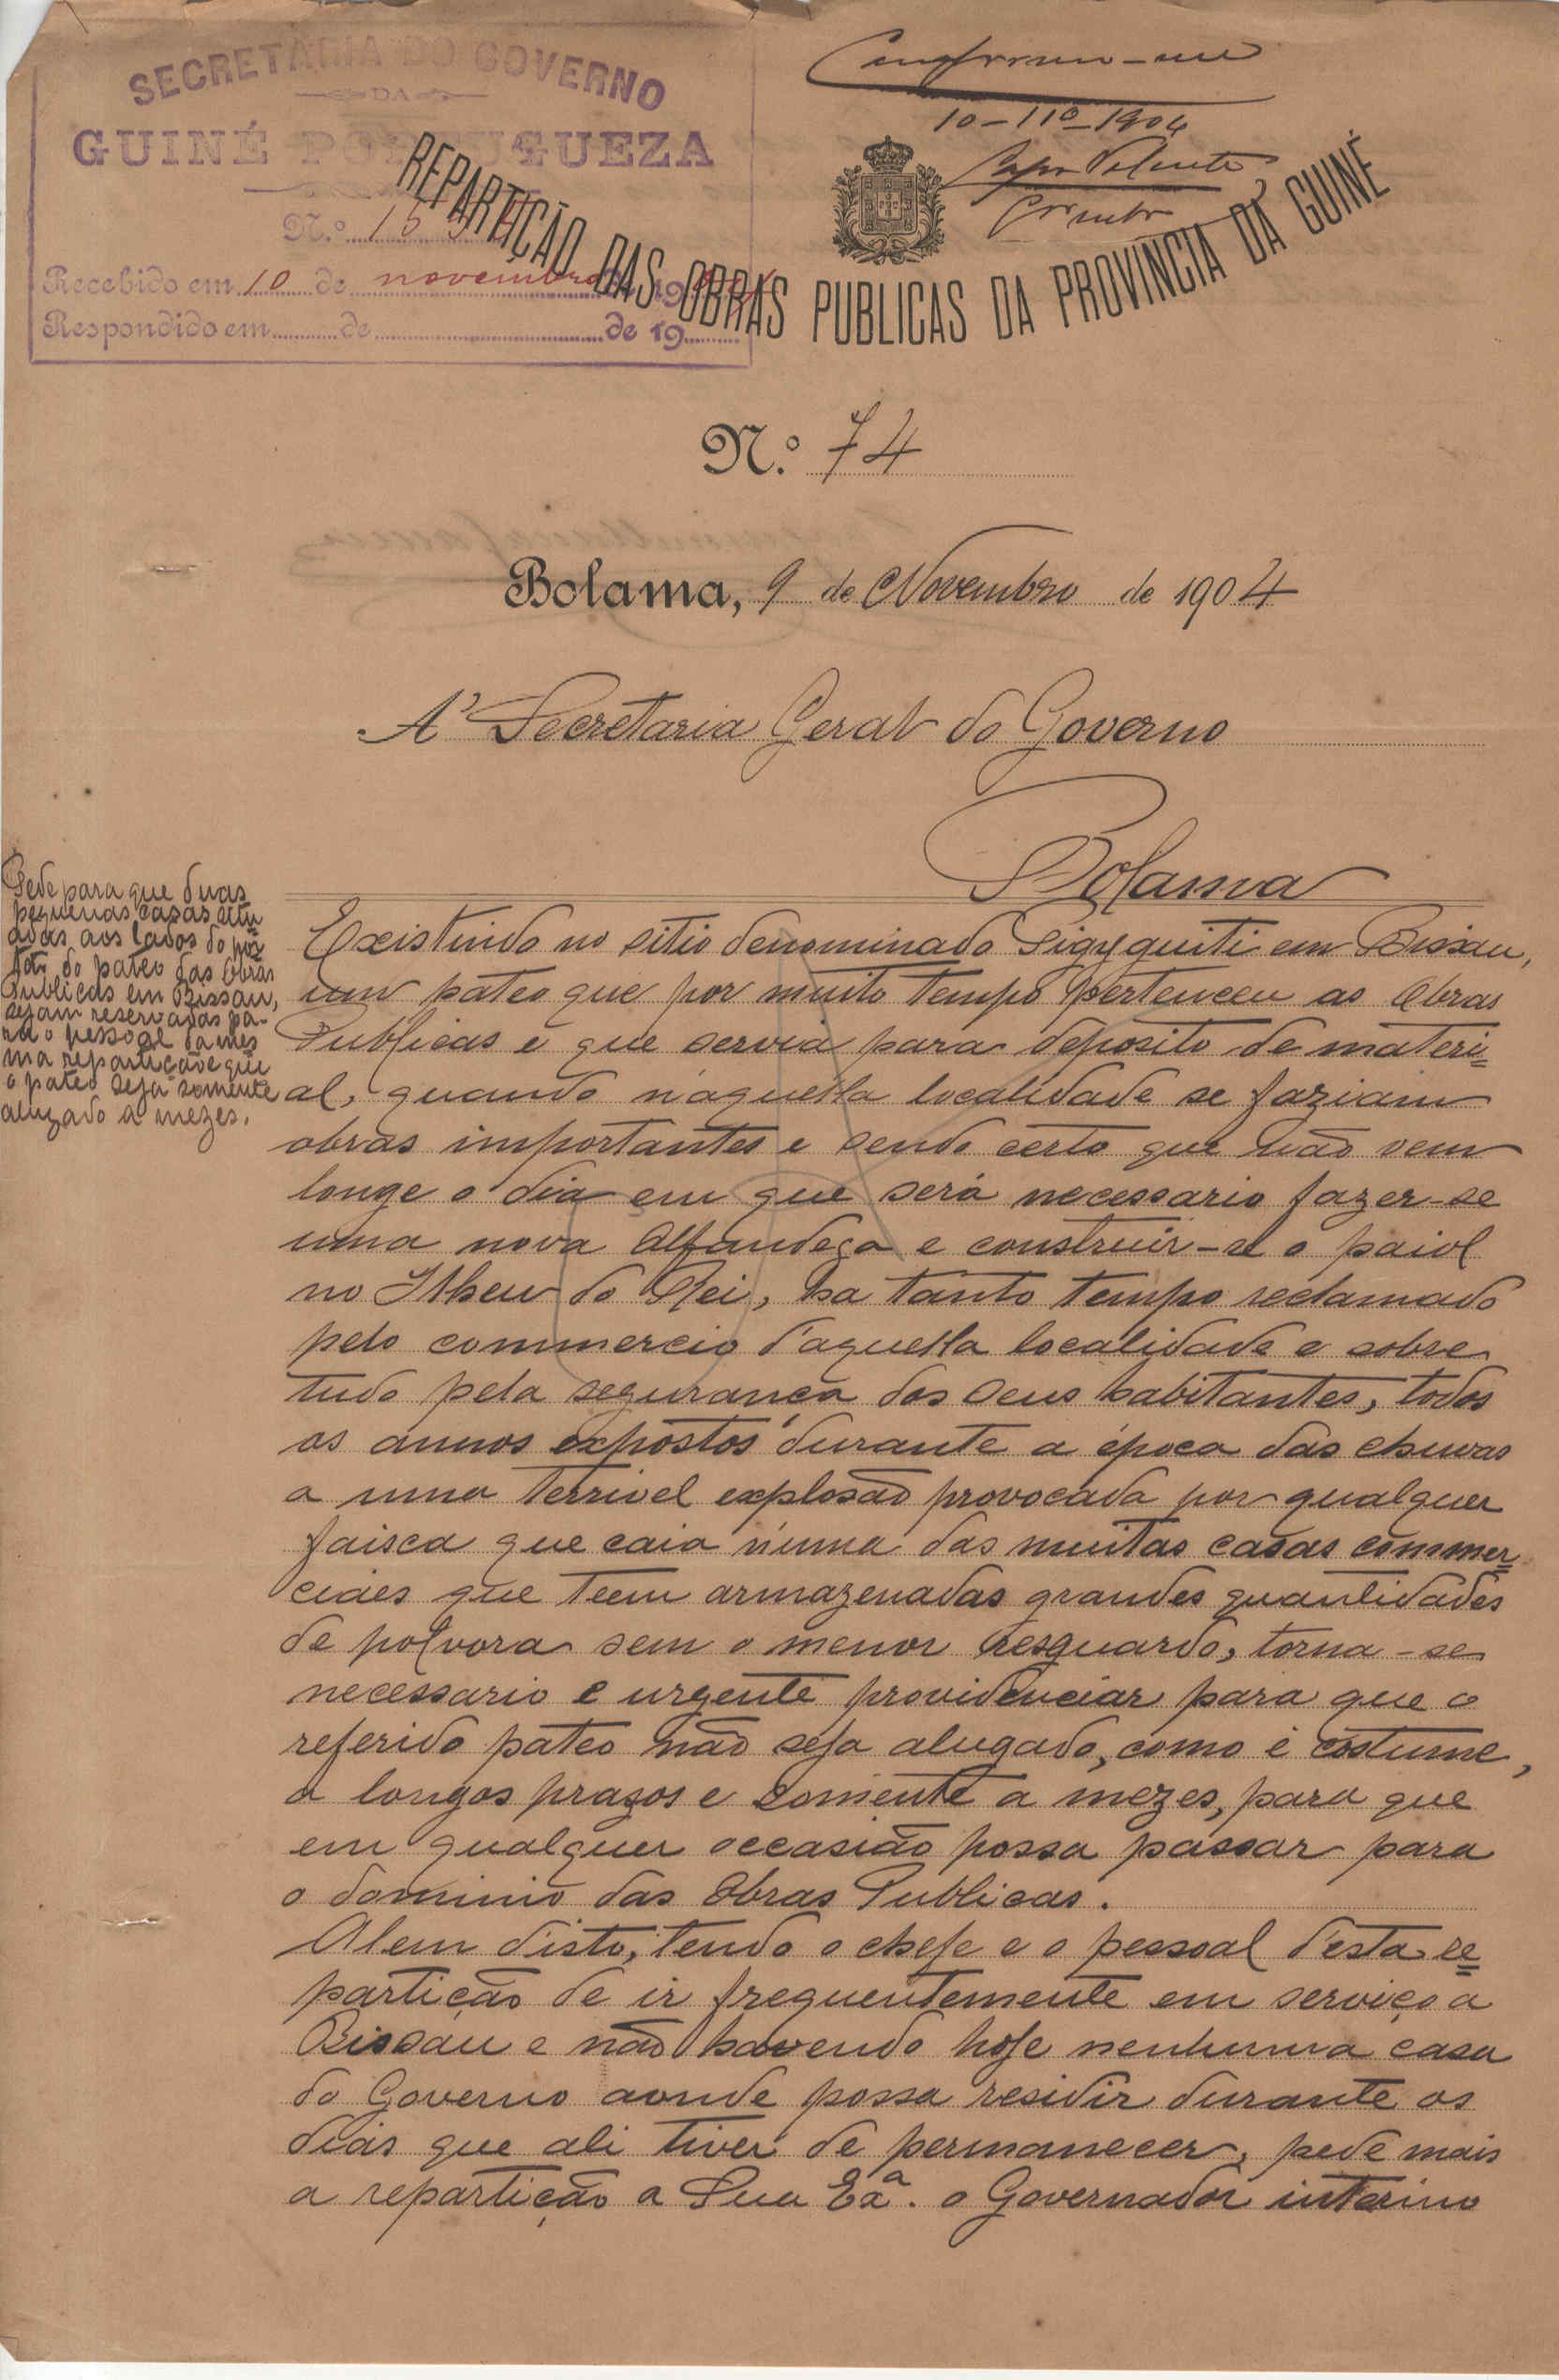 SECRETARIA DO GOVERNO
DA
GUINÉ PORTUGUEZA
N.º
Recebido em 10 de novembro de 19
Respondido em de de 19
Conformo-me
10-11º-1904
REPARTIÇÃO DAS OBRAS PUBLICAS DA PROVINCIA DA GUINÉ
N.º 74
Bolama, 9 de Novembro de 1904
A' Secretaria Geral do Governo
Bolama
Pede para que duas
pequenas casas situ
adas aos lados do por
tão do pateo das Obras
Publicas em Bissau,
sejam reservadas pa-
ra o pessoal da mes
ma repartição e que
o pateo seja somente
alugado a mezes.
Existindo no sitio denominado em Bissau,
um pateo que por muito tempo pertenceu as Obras
Publicas e que servia para deposito de materi=
al, quando n'aquella localidade se faziam
obras importantes e sendo certo que não vem
longe o dia em que será necessario fazer-se
uma nova Alfandega e construir-se o paiol
no Ilheu do Rei, ha tanto tempo reclamado
pelo commercio d'aquella localidade e sobre
tudo pela segurança dos seus habitantes, todos
os annos expostos durante a época das chuvas
a uma terrivel explosão provocada por qualquer
faisca que caia n'uma das muitas casas commer=
ciaes que teem armazenadas grandes quantidades
de polvora sem o menor resguardo, torna-se
necessario e urgente providenciar para que o
referido pateo não seja alugado, como é costume,
a longos prazos e somente a mezes, para que
em qualquer occasião possa passar para
o dominio das Obras Publicas.
Alem disto, tendo o chefe e o pessoal d'esta re=
partição de ir frequentemente em serviço a
Bissau e não havendo hoje nenhuma casa
do Governo aonde possa residir durante os
dias que ali tiver de permanecer, pede mais
a repartição a Sua Exª. o Governador interino